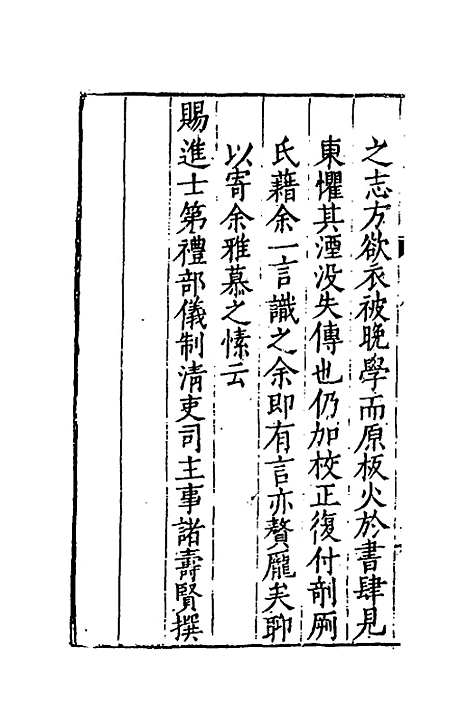 之志方欲衣被晚學而原板火於書肆見
東懼其湮没失傳也仍加校正復付剞劂
氏藉余一言識之余即有言亦贅龐矣聊
以寄余雅慕之愫云
賜進士第禮部儀制清吏司主事諸壽賢撰